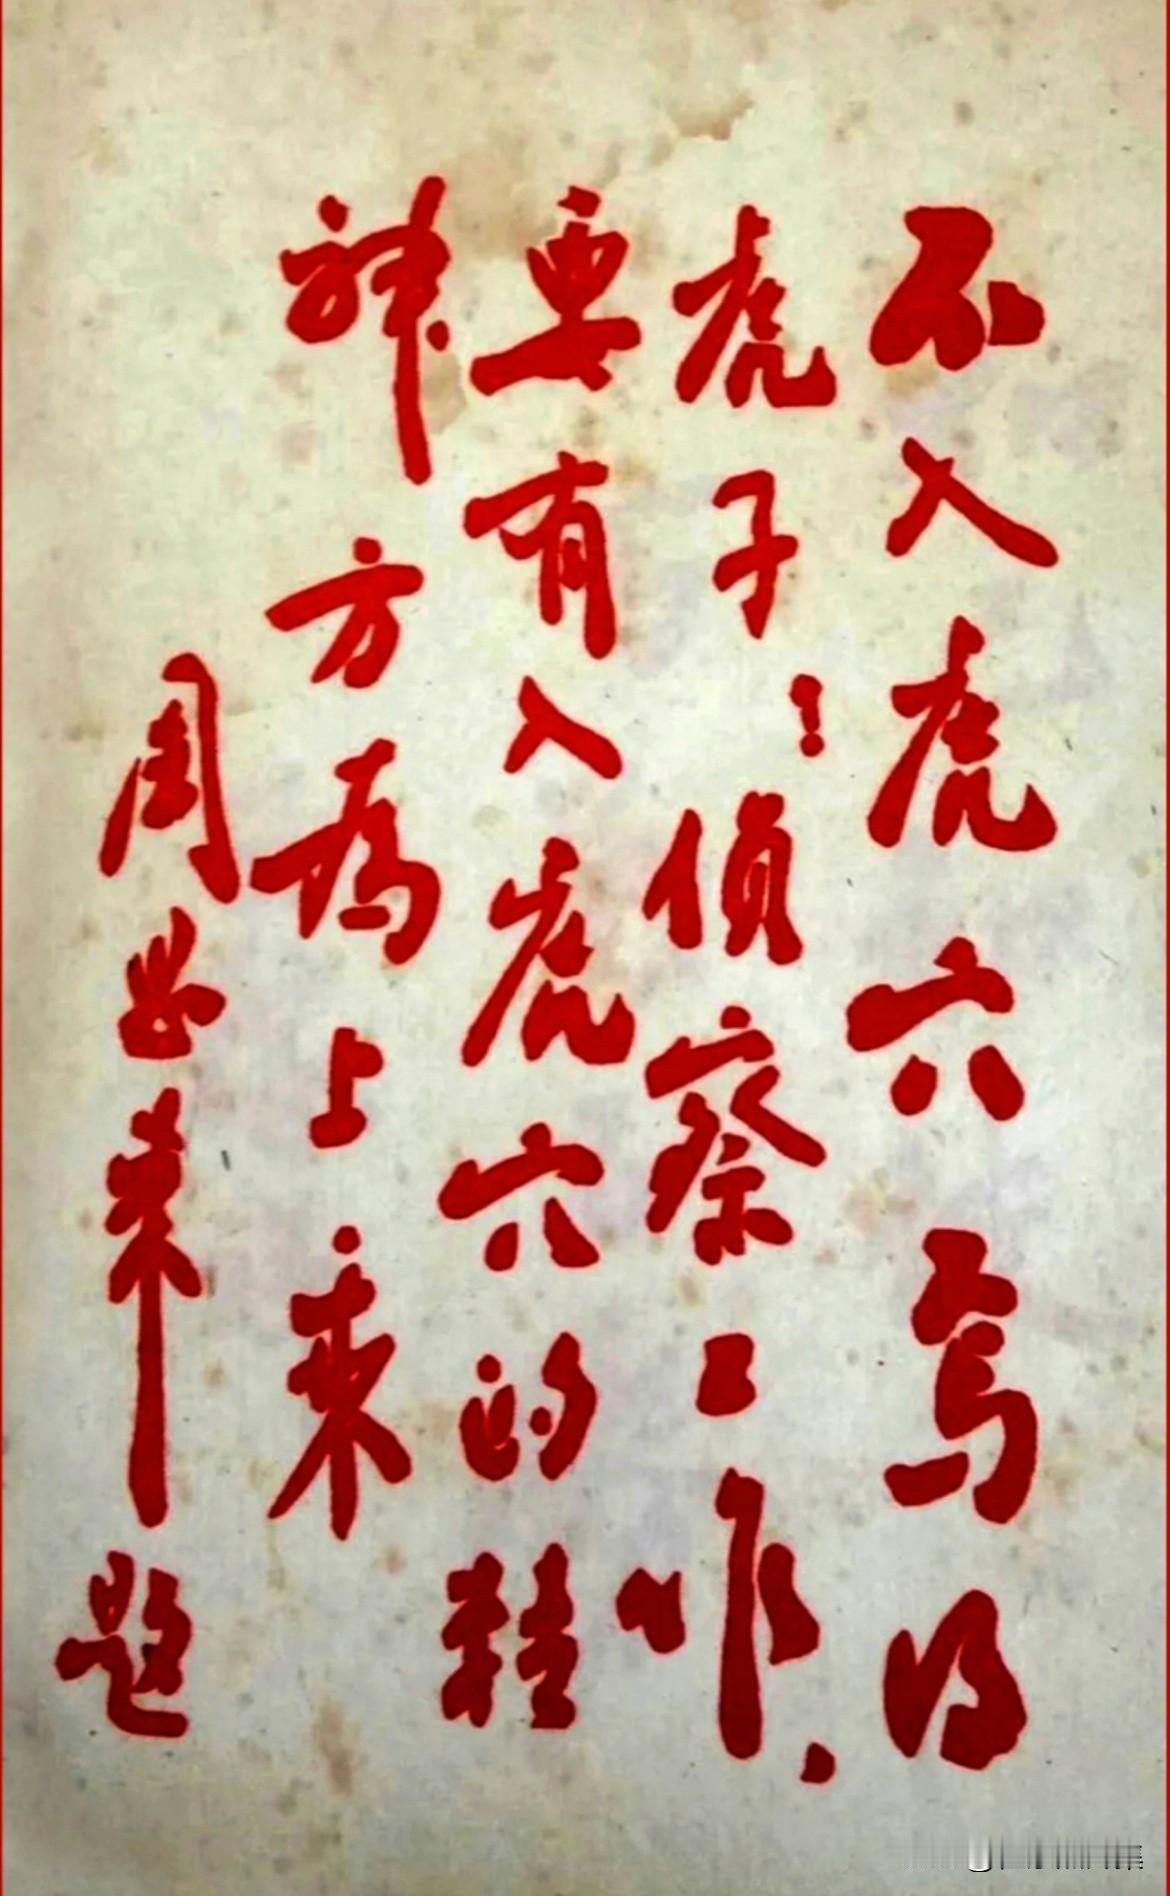 不入虎穴焉得
虎子！偵察工作，
要有入虎穴的精
神方為上乘
周恩来題